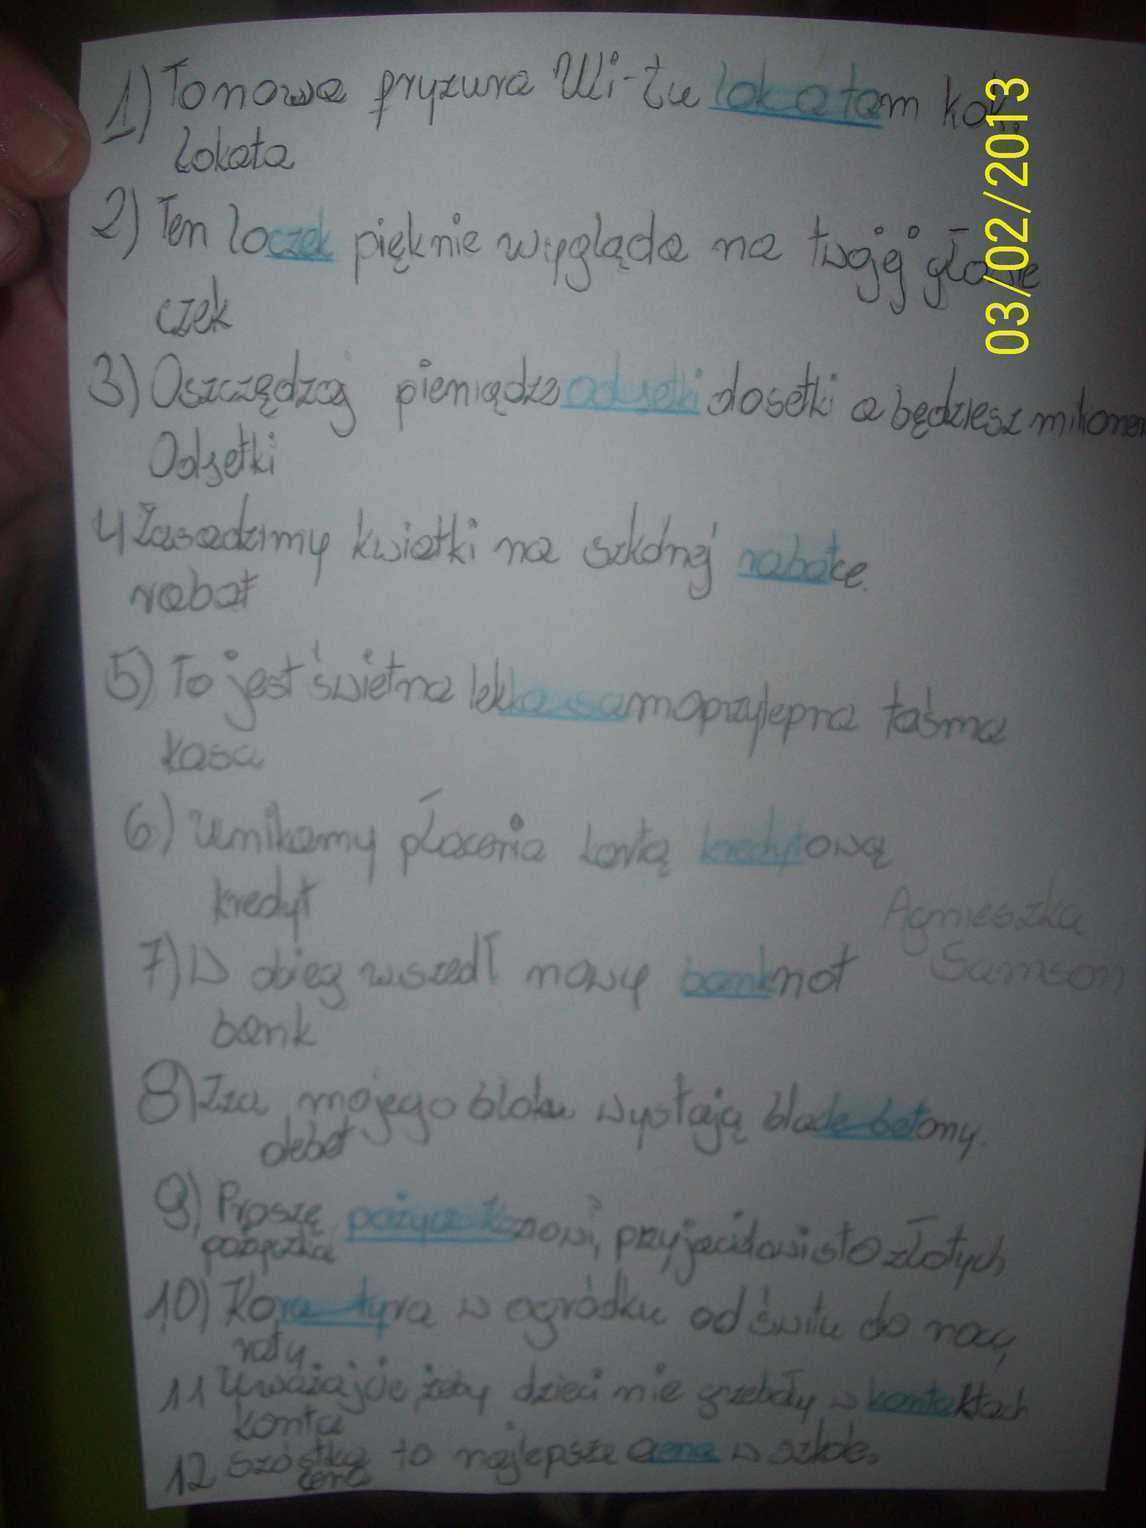 1) To nowa fryzura Uli-tu lok a tam kok.
lokata
2) Ten loczek pięknie wygląda na twojej głowie
czek
3) Oszczędzaj pieniądze od setki do setki a będziesz milioner
Odsetki
4 Zasadzimy kwiatki na szkolnej rabatce.
rabat
5) To jest świetna lekka samoprzylepna taśma
kasa
6) Unikamy płacenia kartą kredytową
kredyt
Agnieszka
Samson
7) W obieg wszedł nowy banknot
bank
8) Zza mojego bloku wystają blade betony.
debet
9) Proszę pożycz Kazowi, przyjacielowi sto złotych
pożyczka
10) Kora tyra w ogródku od świtu do nocy
raty
11 Uważajcie żeby dzieci nie grzebały w kontaktach
konta
12 szóstka to najlepsza ocena w szkole.
cena
03/02/2013